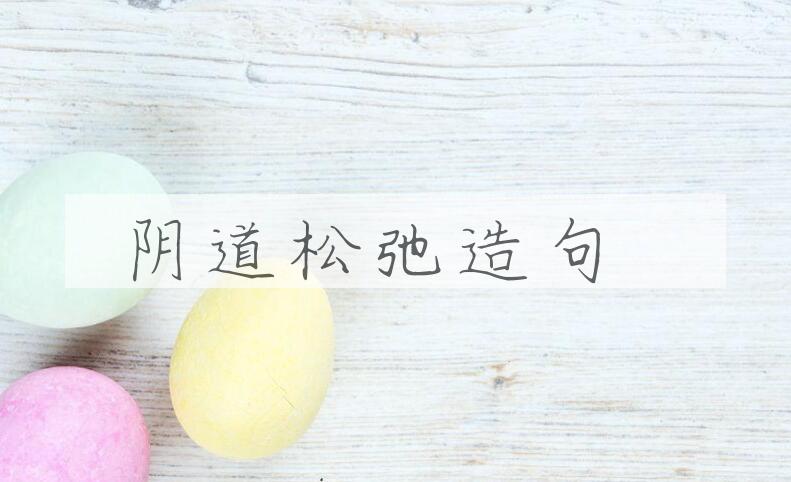 阴道松弛造句